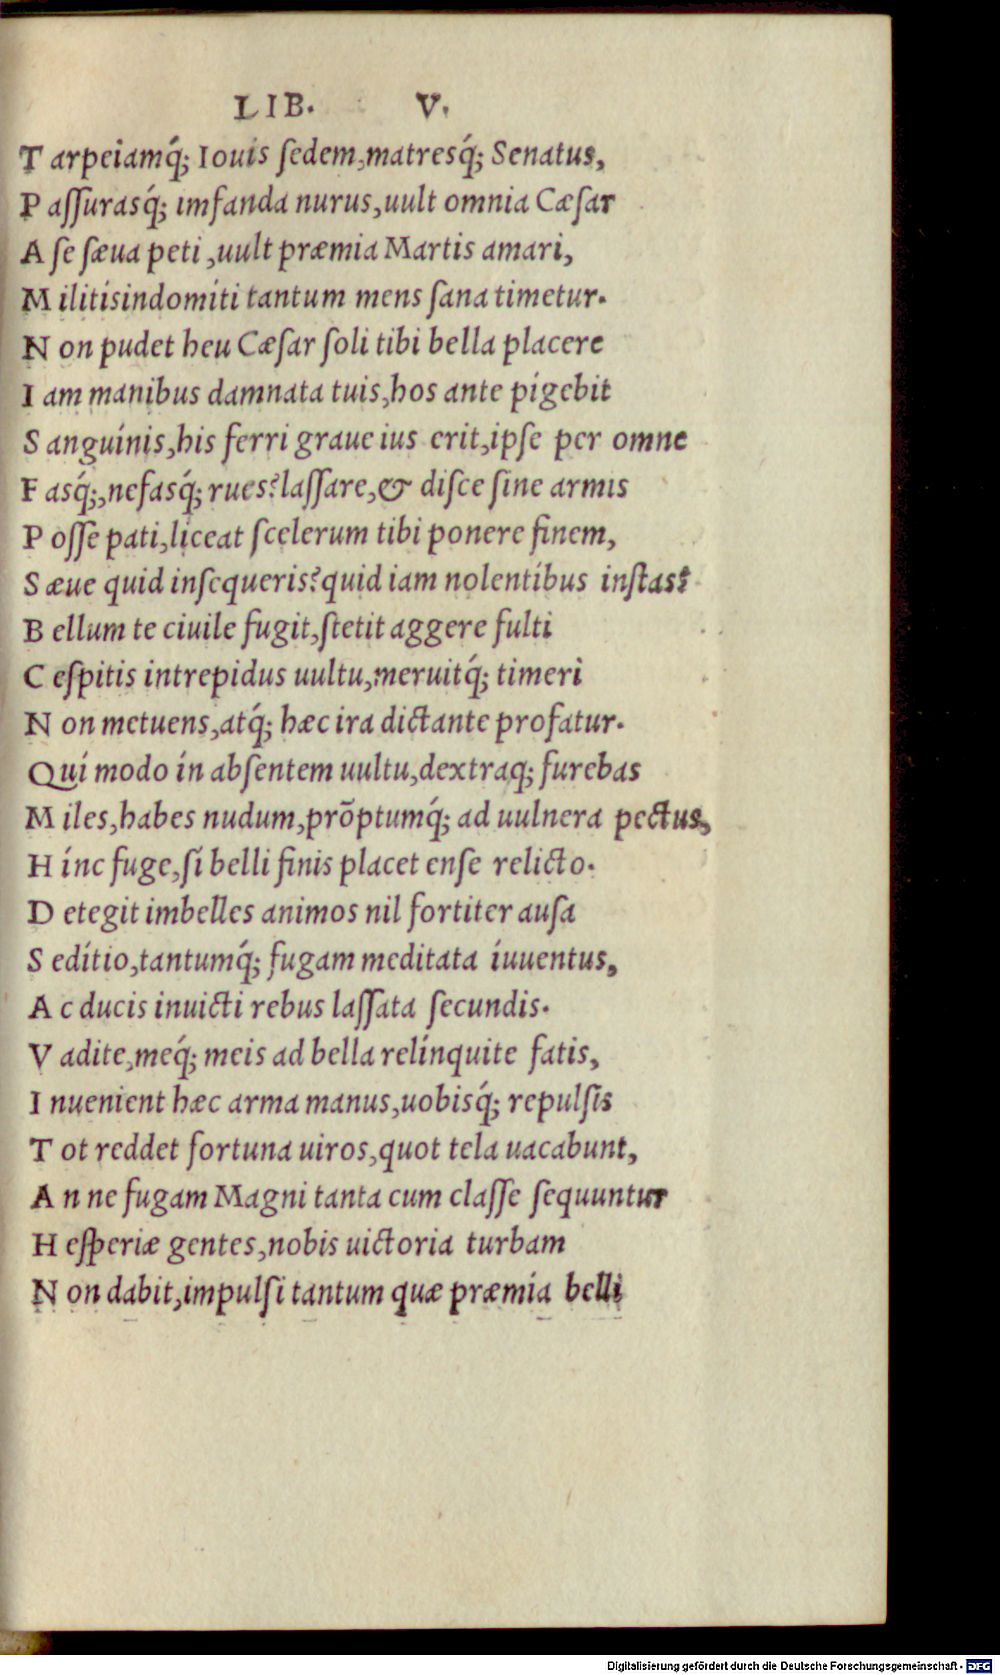 LIB. V.
T arpeiamq́; Iouis ſedem,matresq́; Senatus,
P aſſurasq́; imfanda nurus,uult omnia Cæſar
A ſe ſæua peti,uult præmia Martis amari,
M ilitisindomiti tantum mens ſana timetur.
N on pudet heu Cæſar ſoli tibi bella placere
I am manibus damnata tuis,hos ante pigebit
S anguinis,his ferri graue ius erit,ipſe per omne
F asq́;,nefasq́; rues?laſſare,& diſce ſine armis
P oſſe pati,liceat ſcelerum tibi ponere finem,
S æue quid inſequeris?quid iam nolentibus inſtas?
B ellum te ciuile fugit,ſtetit aggere fulti
C eſpitis intrepidus uultu,meruitq́; timeri
N on metuens,atq́; hæc ira dictante profatur.
Qui modo in abſentem uultu,dextraq; furebas
M iles,habes nudum,prõptumq́; ad uulnera pectus,
H inc fuge,ſi belli finis placet enſe relicto.
D etegit imbelles animos nil fortiter auſa
S editio,tantumq́; fugam meditata iuuentus,
A c ducis inuicti rebus laſſata ſecundis.
V adite,meq́; meis ad bella relinquite fatis,
I nuenient hæc arma manus,uobisq́; repulſis
T ot reddet fortuna uiros,quot tela uacabunt,
A n ne fugam Magni tanta cum claſſe ſequuntur
H eſperiæ gentes,nobis uictoria turbam
N on dabit,impulſi tantum quæ præmia belli
Digitalisierung gefördert durch die Deutsche Forschungsgemeinschaft - DFG